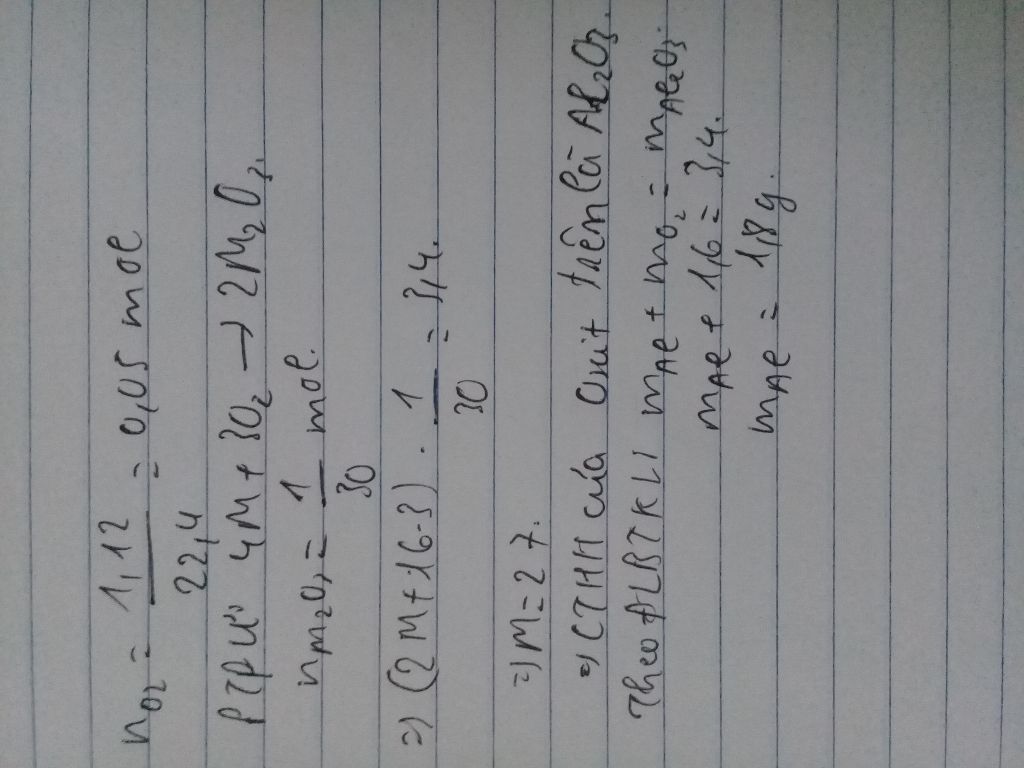 nO2 = 1,12 / 22,4 = 0,05 mol
PTPƯ 4M + 3O2 → 2M2O3.
nM2O3 = 1 / 30 mol.
=> (2M + 16.3) . 1 / 30 = 3,4.
=> M = 27.
=> CTHH của Oxit trên là Al2O3.
Theo ĐLBTKLI mAl + mO2 = mAl2O3.
mAl + 1,6 = 3,4.
mAl = 1,8g.